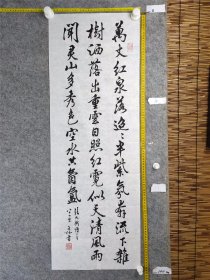 萬丈红泉落迢迢半紫氛奔流下雜
樹洒落出重雲日照虹霓似天清風雨
聞灵山多秀色空水共氤氳